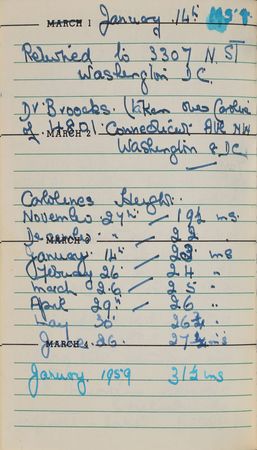 MARCH 1 January 14th 1958
Returned to 3307 N. ST
Washington D.C.
Dr Broocks. (taken over Caroline
of 1801. Connecticut Ave NW
MARCH 2
Washington D.C.
Carolines Height.
November 27th / 19½ ins
MARCH 3
December " / 22 "
January 14th / ins
February 26 / 24 "
March 26 / 25 "
April 29th / 26 "
May 30 26¾ "
26. 27¾ ins
MARCH 4
January 1959 31½ ins